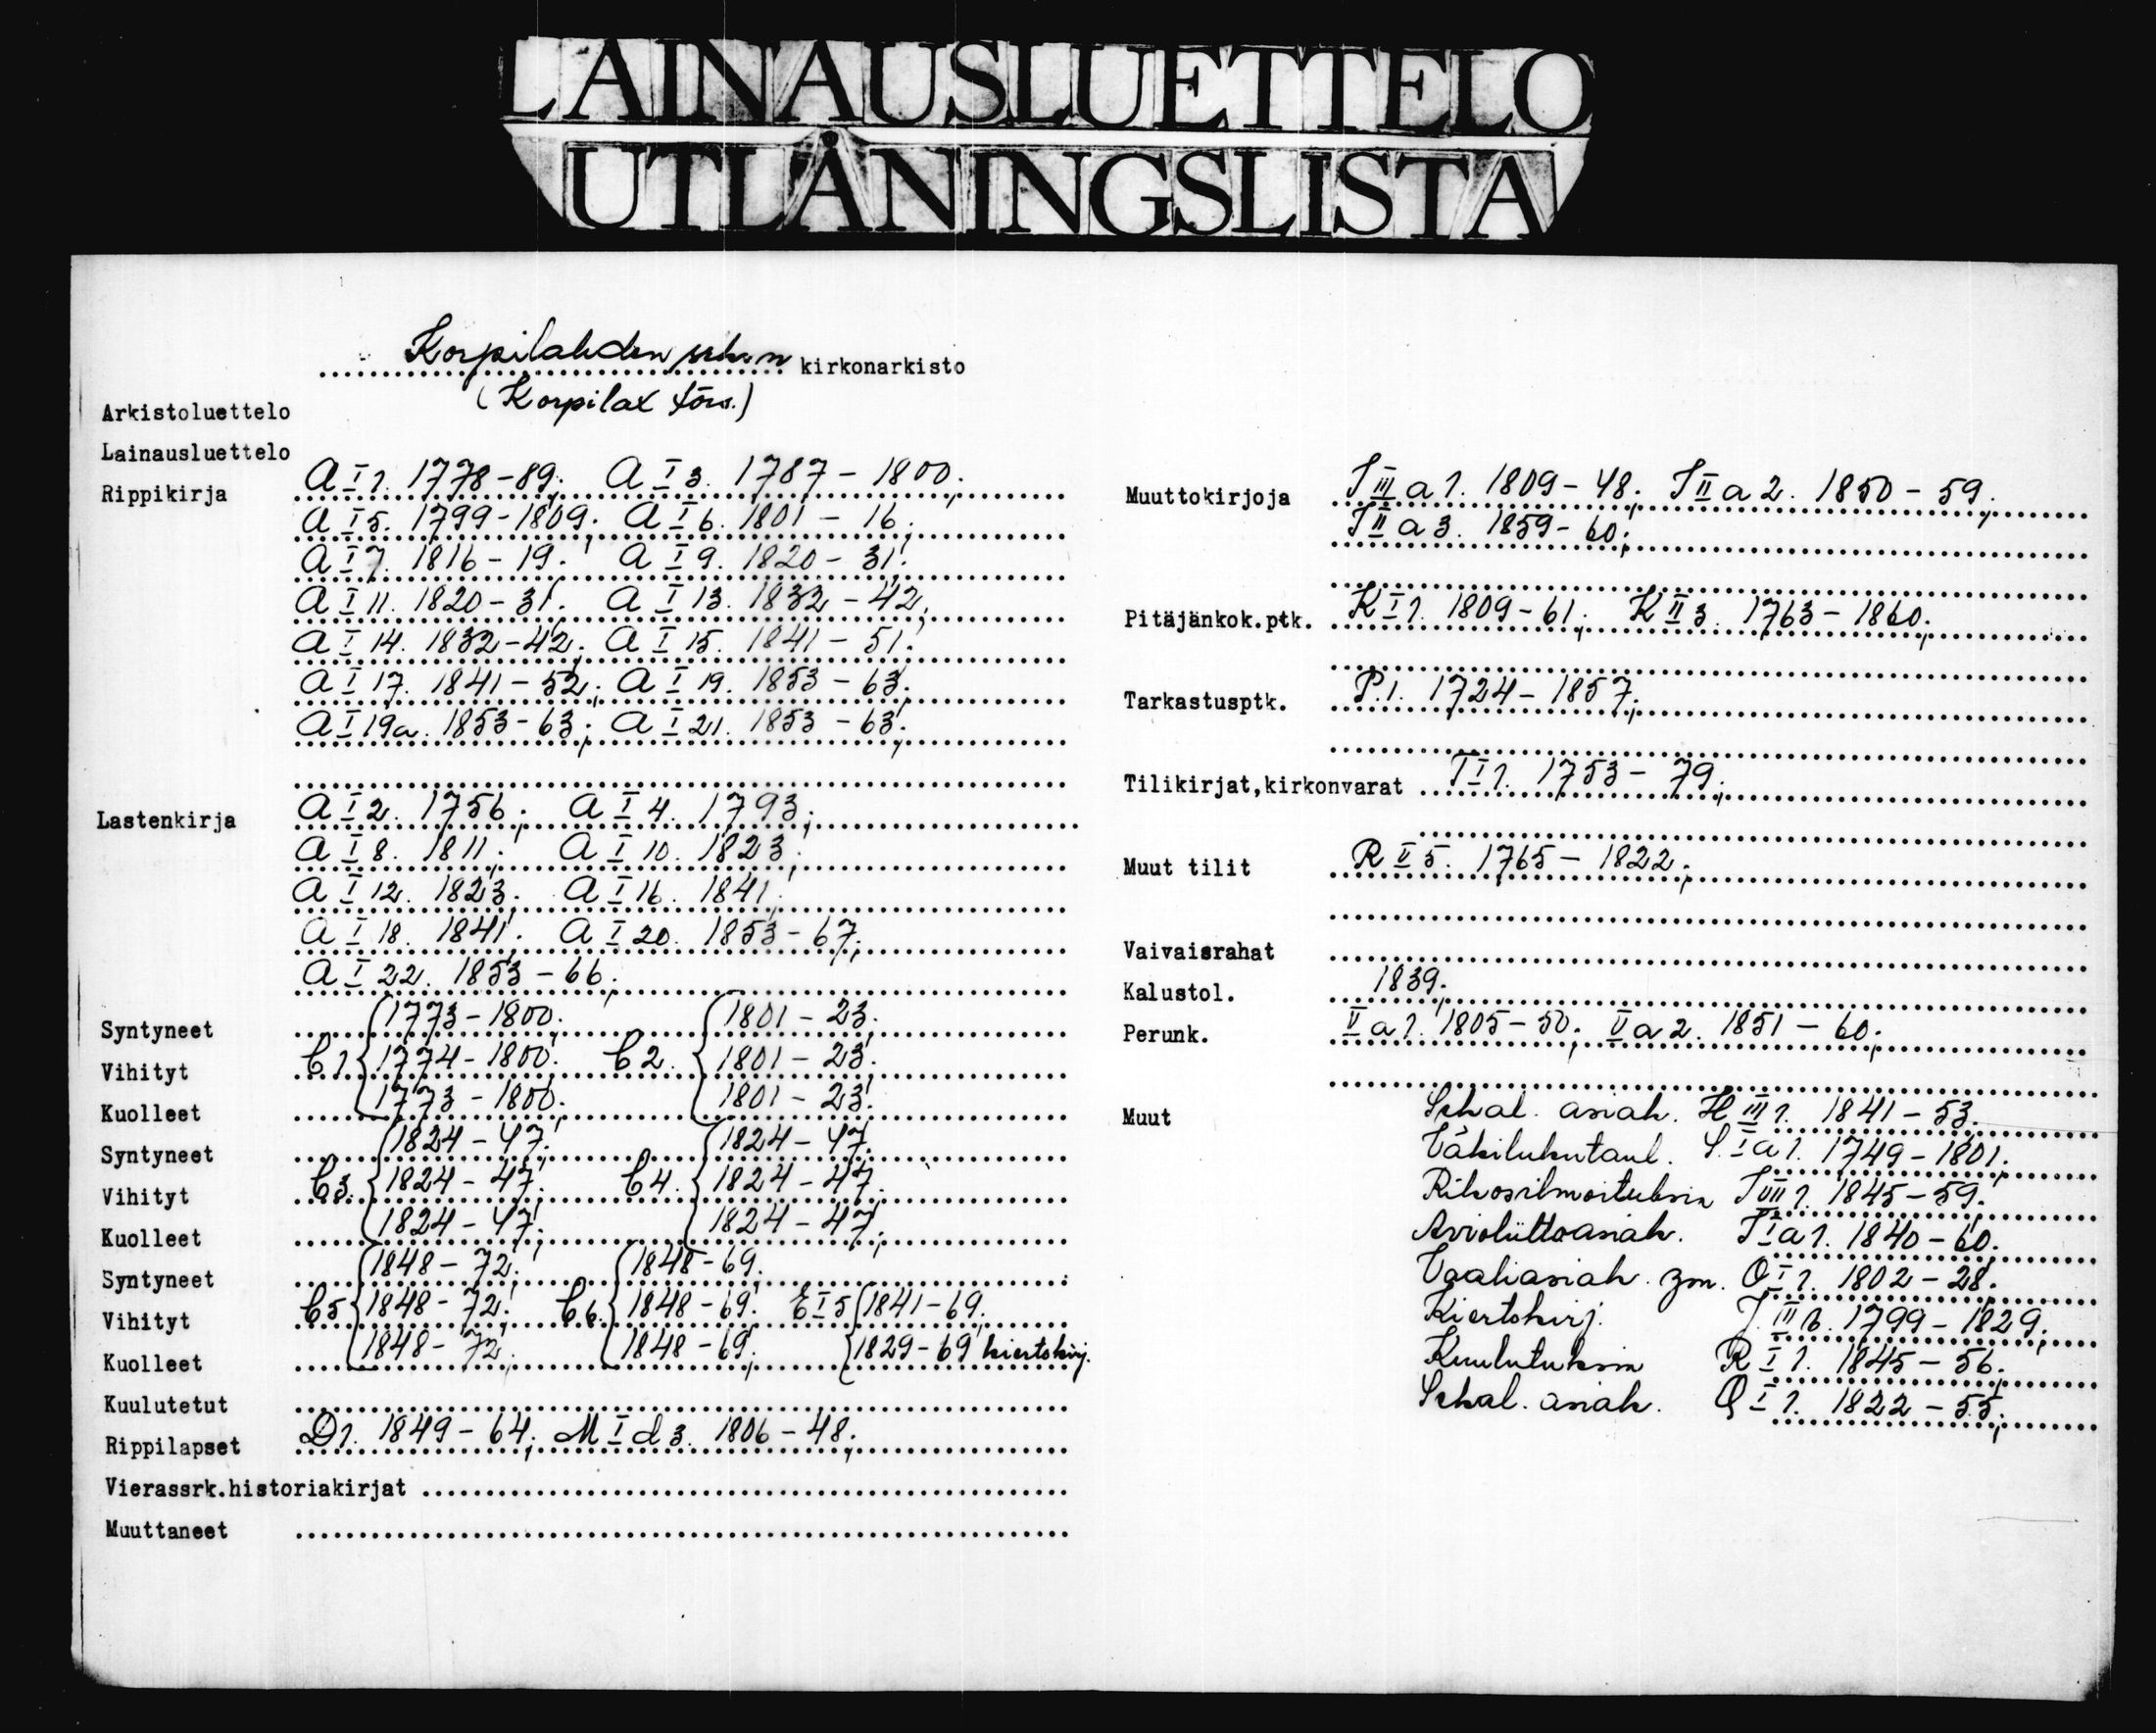 LAINAUSLUETTELO
UTLÅNINGSLISTA
Korpilahden srk:n kirkonarkisto
(Korpilax förs.)
Arkistoluettelo
Lainausluettelo
Rippikirja A I 1. 1778-89; A I 3. 1787-1800;
A I 5. 1799-1809; A I 6. 1801-16;
A I 7. 1816-19; A I 9. 1820-31;
A I 11. 1820-31; A I 13. 1832-42;
A I 14. 1832-42; A I 15. 1841-51;
A I 17. 1841-52; A I 19. 1853-63;
A I 19a. 1853-63; A I 21. 1853-63;
Lastenkirja A I 2. 1756; A I 4. 1793;
A I 8. 1811; A I 10. 1823;
A I 12. 1823; A I 16. 1841;
A I 18. 1841; A I 20. 1853-67;
A I 22. 1853-66;
Syntyneet 1773-1800; 1801-23;
Vihityt C 1. 1774-1800; C 2. 1801-23;
Kuolleet 1773-1800; 1801-23;
Syntyneet 1824-47; 1824-47;
Vihityt C 3. 1824-47; C 4. 1824-47;
Kuolleet 1824-47; 1824-47;
Syntyneet 1848-72; 1848-69;
Vihityt C 5 1848-72; C 6. 1848-69; E I 5 1841-69;
Kuolleet 1848-72; 1848-69; 1829-69 kiertokirj.
Kuulutetut
Rippilapset D 1. 1849-64; M I d 3. 1806-48;
Vierassrk.historiakirjat
Muuttaneet
Muuttokirjoja J III a 1. 1809-48; J II a 2. 1850-59;
J II a 3. 1859-60;
Pitäjänkok.ptk. K I 1. 1809-61; K II 3. 1763-1860;
Tarkastusptk. P. 1. 1724-1857;
Tilikirjat,kirkonvarat T I 1. 1753-79;
Muut tilit R II 5. 1765-1822;
Vaivaisrahat
Kalustol. 1839;
Perunk. V a 1. 1805-50; V a 2. 1851-60;
Muut Sekal. asiak. H III 1. 1841-53;
Väkilukutaul. S. I a 1. 1749-1801;
Rikosilmoituksia J VII 1. 1845-59;
Avioliittoasiak. J I a 1. 1840-60;
Vaaliasiak. ym. O I 1. 1802-28;
Kiertokirj. J. III b. 1799-1829;
Kuulutuksia R I 1. 1845-56;
Sekal. asiak. Q I 1. 1822-55;